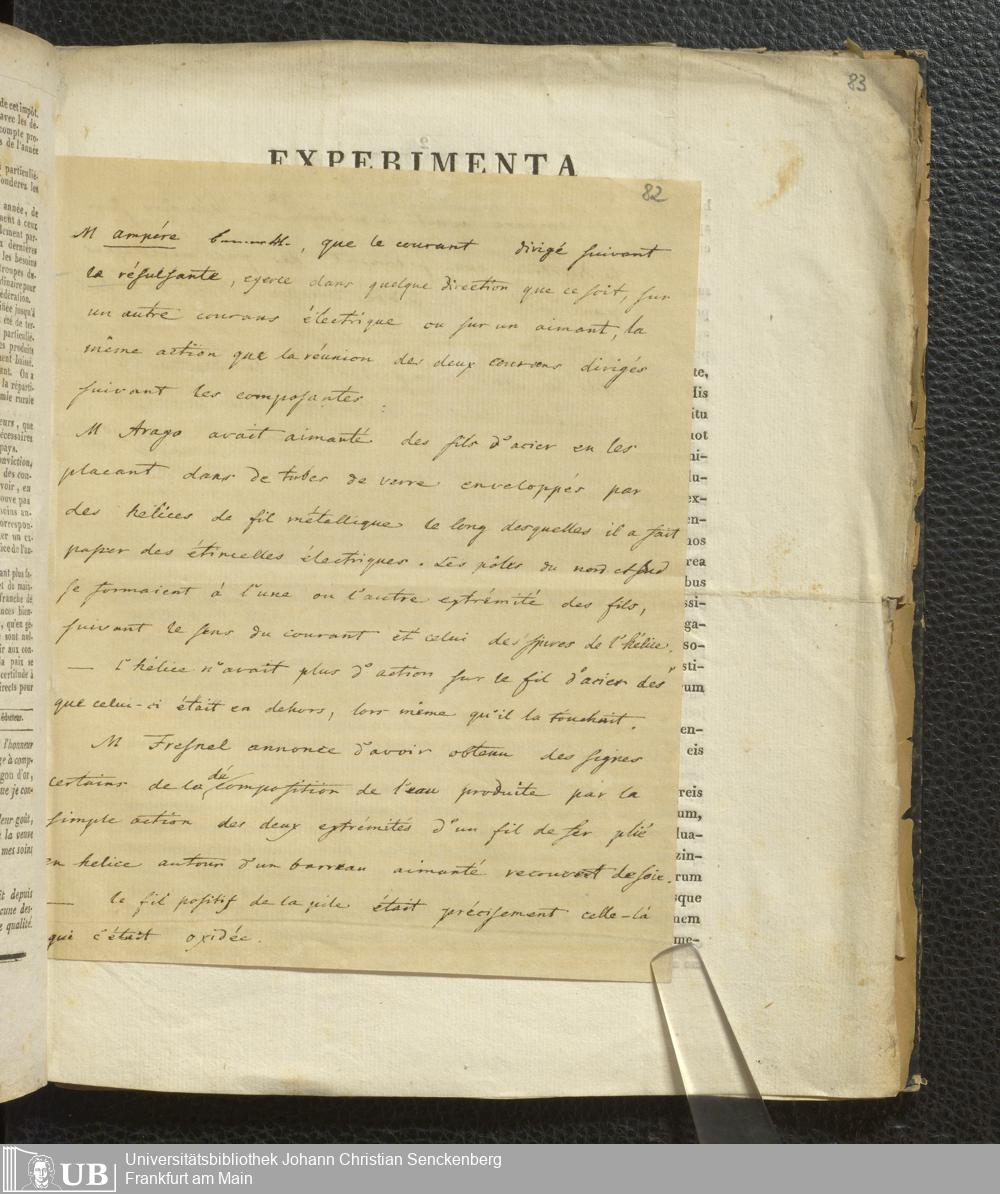 83
EXPERIMENTA
82
M ampére , que le courant dirigé suivant
la résultante, exerce dans quelque direction que ce soit, sur
un autre courans électrique ou sur un aimant, la
même action que la réunion des deux courans dirigés
suivant les composantes.
M Arago avait aimanté des fils d'acier en les
placant dans de tubes de verre enveloppés par
des hélices de fil métallique le long desquelles il a fait
passer des étincelles électriques. Les pôles du nord et sud
se formaient à l'une ou l'autre extrémité des fils,
suivant le sens du courant et celui des spires de l'hélice.
— l'hélice n'avait plus d'action sur le fil d'acier dès
que celui-ci était en dehors, lors même qu'il la touchait.
M Fresnel annonce d'avoir obtenu des signes
certains de la décomposition de l'eau produite par la
simple action des deux extrémités d'un fil de fer plié
en helice autour d'un barreau aimanté recouvert de soie.
— le fil positif de la pile était précisement celle-là
qui s'était oxidée.
de cet impôt.
avec les de-
compte pro-
s de l'année
particulié-
onderez les
année, de
ment à ceux
lement par-
x dernières
les besoins
troupes de-
dinaire pour
édération.
jusqu'à
été de ter-
particulié-
es produits
ment baissé.
ant. On a
la réparti-
mie rurale
eurs, que
écessaires
pays.
onviction,
des con-
voir, en
ouve pas
soins an-
orrespon-
er un ex-
fice de l'an-
ant plus fa-
et de main-
franche de
nces bien-
, qu'en gé-
sont nul-
ir aux con-
a paix se
certitude à
irects pour
édacteur.
l'honneur
ge à comp-
gon d'or,
que je con-
leur goût,
à la veuve
mes soins
it depuis
cune des-
e qualité.
te,
His
itu
not
ni-
lu-
ex-
en-
nos
rea
bus
ssi-
ga-
so-
sti-
rum
en-
eis
reis
um,
lua-
zin-
rum
sque
nem
me-
UB
Universitätsbibliothek Johann Christian Senckenberg
Frankfurt am Main